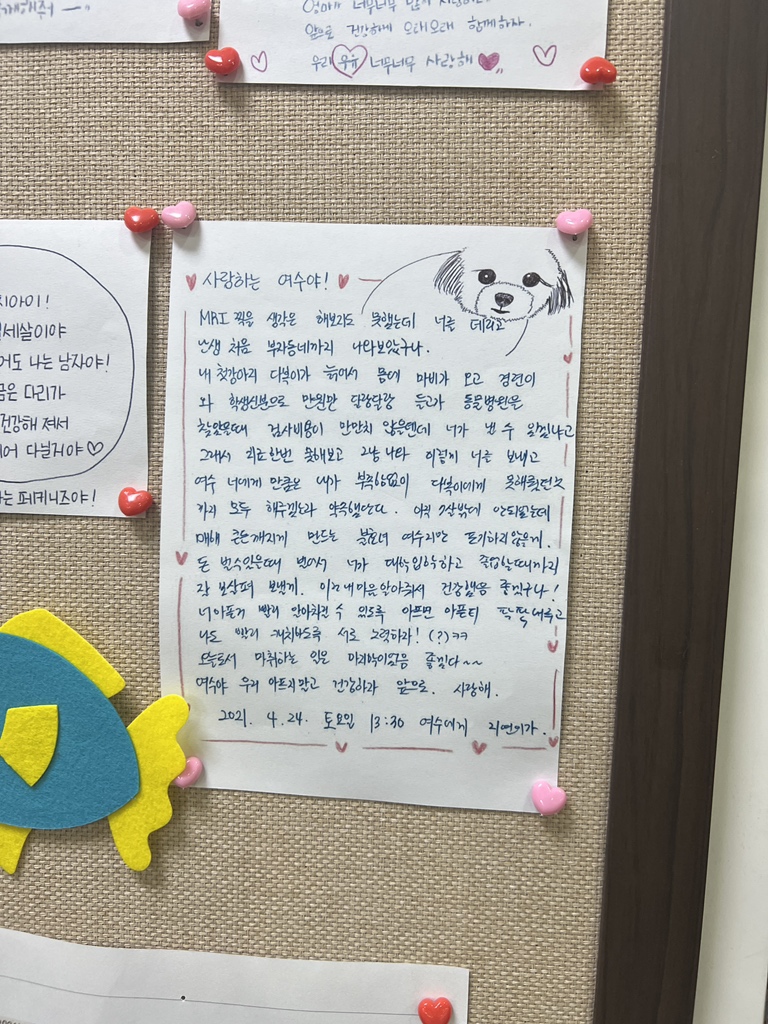 앞으로 건강하게 오래오래 함께하자.
우리 우유 너무너무 사랑해
어도 나는 남자야!
은 다리가
건강해 져서
어 다닐거야
는 페키니즈야!
사랑하는 여수야!
MRI 찍을 생각은 해보지도 못했는데 너를 데리고
난생 처음 부자동네까지 나와보았구나.
내 첫강아지 다복이가 늙어서 몸에 마비가 오고 경련이
와 학생신분으로 만원만 달랑달랑 들고가 동물병원을
찾았을때 검사비용이 만만치 않을텐데 너가 낼 수 있겠냐고
그래서 치료한번 못해보고 그날 나와 이렇게 너를 보내고
여수 너에게 만큼은 내가 부족함없이 다복이에게 못해줬던것
까지 모두 해주겠노라 약속했단다. 아직 7살밖에 안되었는데
매해 큰돈깨지게 만드는 불효녀 여수지만 포기하지않을게.
돈 벌수있을때 벌어서 너가 대학입학하고 졸업할때까지
잘 보살펴 보낼게. 이런 내마음 알아줘서 건강했음 좋겠구나!
너아픈거 빨리 알아차릴 수 있도록 아프면 아픈티 팍팍내주고
나도 빨리 캐치하도록 서로 노력하자! (?)ㅋㅋ
오늘로서 마취하는 일은 마지막이었음 좋겠다~~
여수야 우리 아프지말고 건강하자 앞으로. 사랑해.
2021. 4. 24. 토요일 13:30 여수에게 지연이가.